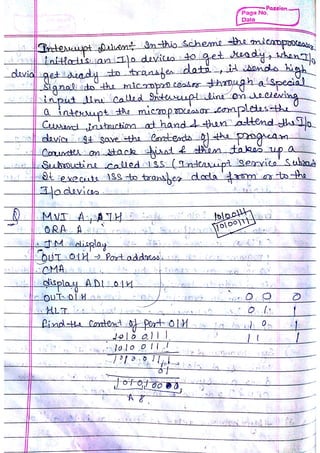 Passion
Page No.
Date
Interrupt Driven: In this scheme the microprocessor
initiates an I/o devices to get ready, when I/o
device get ready to transfer data, it sends high
signal to the microprocessor through a special
input line called Interrupt line on receiving
a interrupt the microprocessor completes the
current instruction at hand & then attend the I/o
device It save the Contents of the program
Counter on stack first & then takes up a
Subroutine called ISS (Interrupt Service Subrout
It execute ISS to transfer data from or to the
I/o devices
Q MVI A, A7H
10100111
10100111
ORA A
JM display
OUT 01H → Port address.
CMA
display ADI 01H
OUT 01H 0 0 0
HLT 0 1 1
Find the Content of Port 01H 1 0 1
1010 0111 1 1 1
1010 0111
1010 0111
01
10101000
A 8